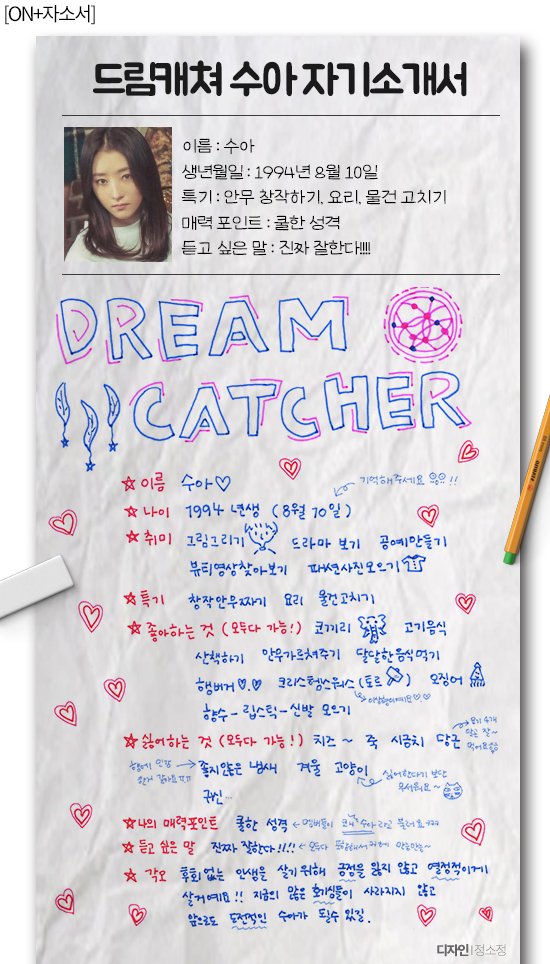 [ON+자소서]
드림캐쳐 수아 자기소개서
이름 : 수아
생년월일 : 1994년 8월 10일
특기 : 안무 창작하기, 요리, 물건 고치기
매력 포인트 : 쿨한 성격
듣고 싶은 말 : 진짜 잘한다!!!!
DREAM
CATCHER
이름 수아♡ 기억해주세요 !!
나이 1994년생 (8월 10일)
취미 그림그리기 드라마 보기 공예만들기
뷰티영상찾아보기 패션사진모으기
특기 창작안무짜기 요리 물건고치기
좋아하는 것 (모두다 가능!) 코끼리 고기음식
산책하기 안무가르쳐주기 달달한음식먹기
햄버거♡.♡ 크리스헴스워스(토르) 오징어
향수 - 립스틱 - 신발 모으기
싫어하는 것 (모두다 가능!) 치즈 ~ 죽 시금치 당근
좋지않은 냄새 겨울 고양이
싫어한다기 보단
무서워요~
귀신...
나의 매력포인트 쿨한 성격
듣고 싶은 말 진짜 잘한다!!!!
각오 후회없는 인생을 살기위해 긍정을 잃지 않고 열정적이게
살거예요!! 지금의 많은 호기심들이 사라지지 않고
앞으로도 도전적인 수아가 될수 있길.
디자인 | 정소정